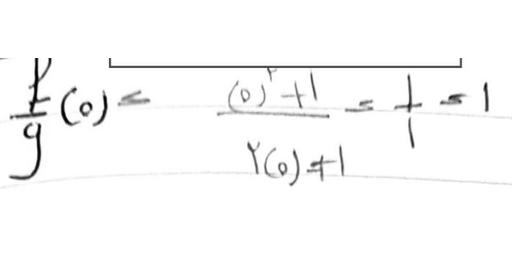 f/g (0) = ((0)^۲ + 1) / (۲(0) + 1) = 1/1 = 1